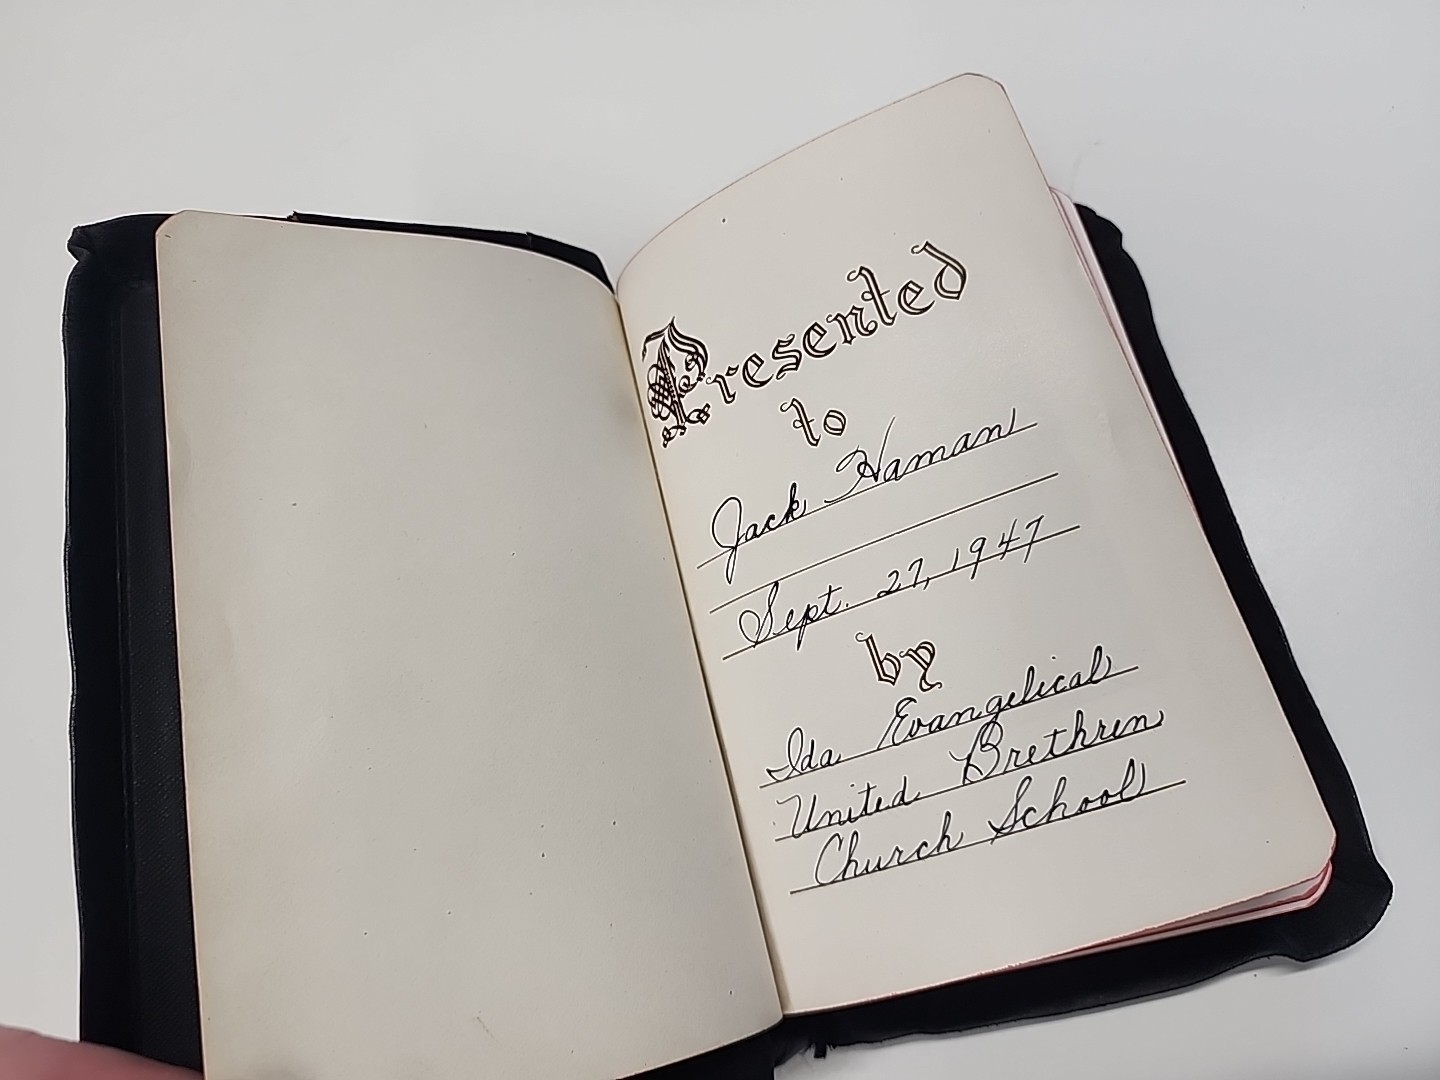 Presented
to
Jack Haman
Sept. 27, 1947
by
Ida Evangelical
United Brethren
Church School